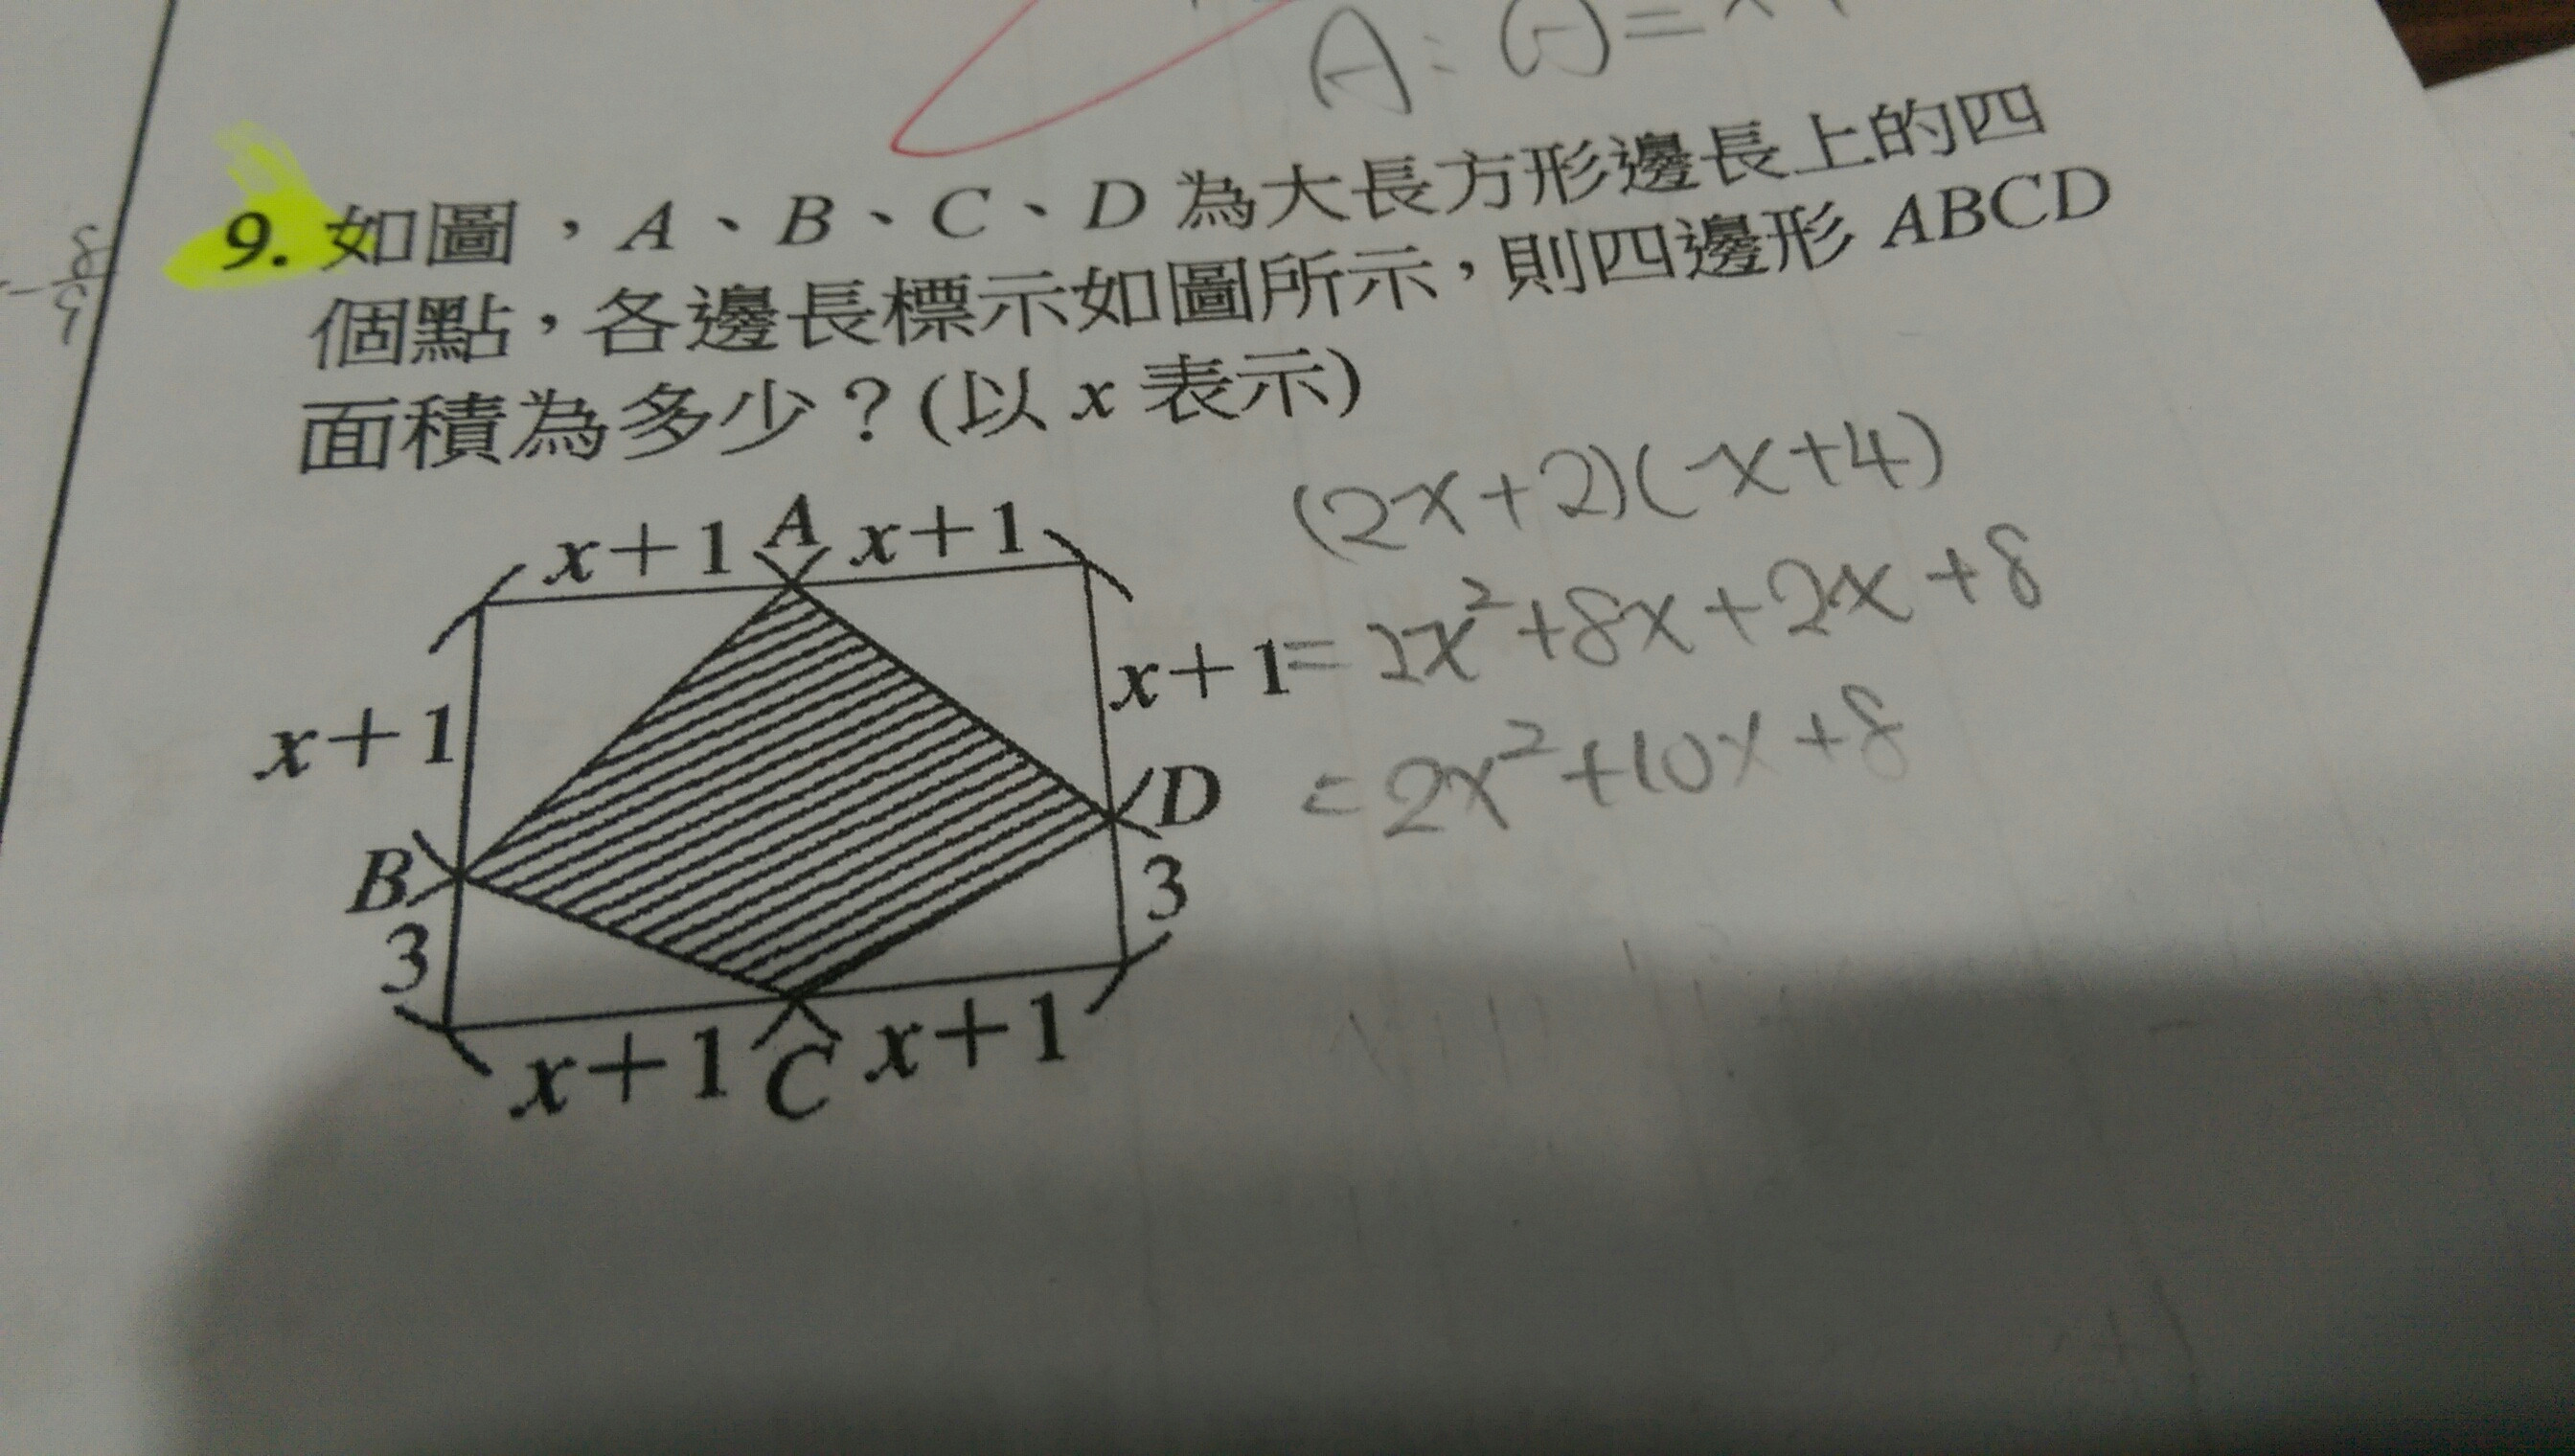 A:
9. 如圖，A、B、C、D 為大長方形邊長上的四
個點，各邊長標示如圖所示，則四邊形 ABCD
面積為多少？(以 x 表示)
(2x+2)(x+4)
=2x²+8x+2x+8
=2x²+10x+8
x+1 A x+1
x+1
x+1
B
D
3
3
x+1 C x+1
8
9